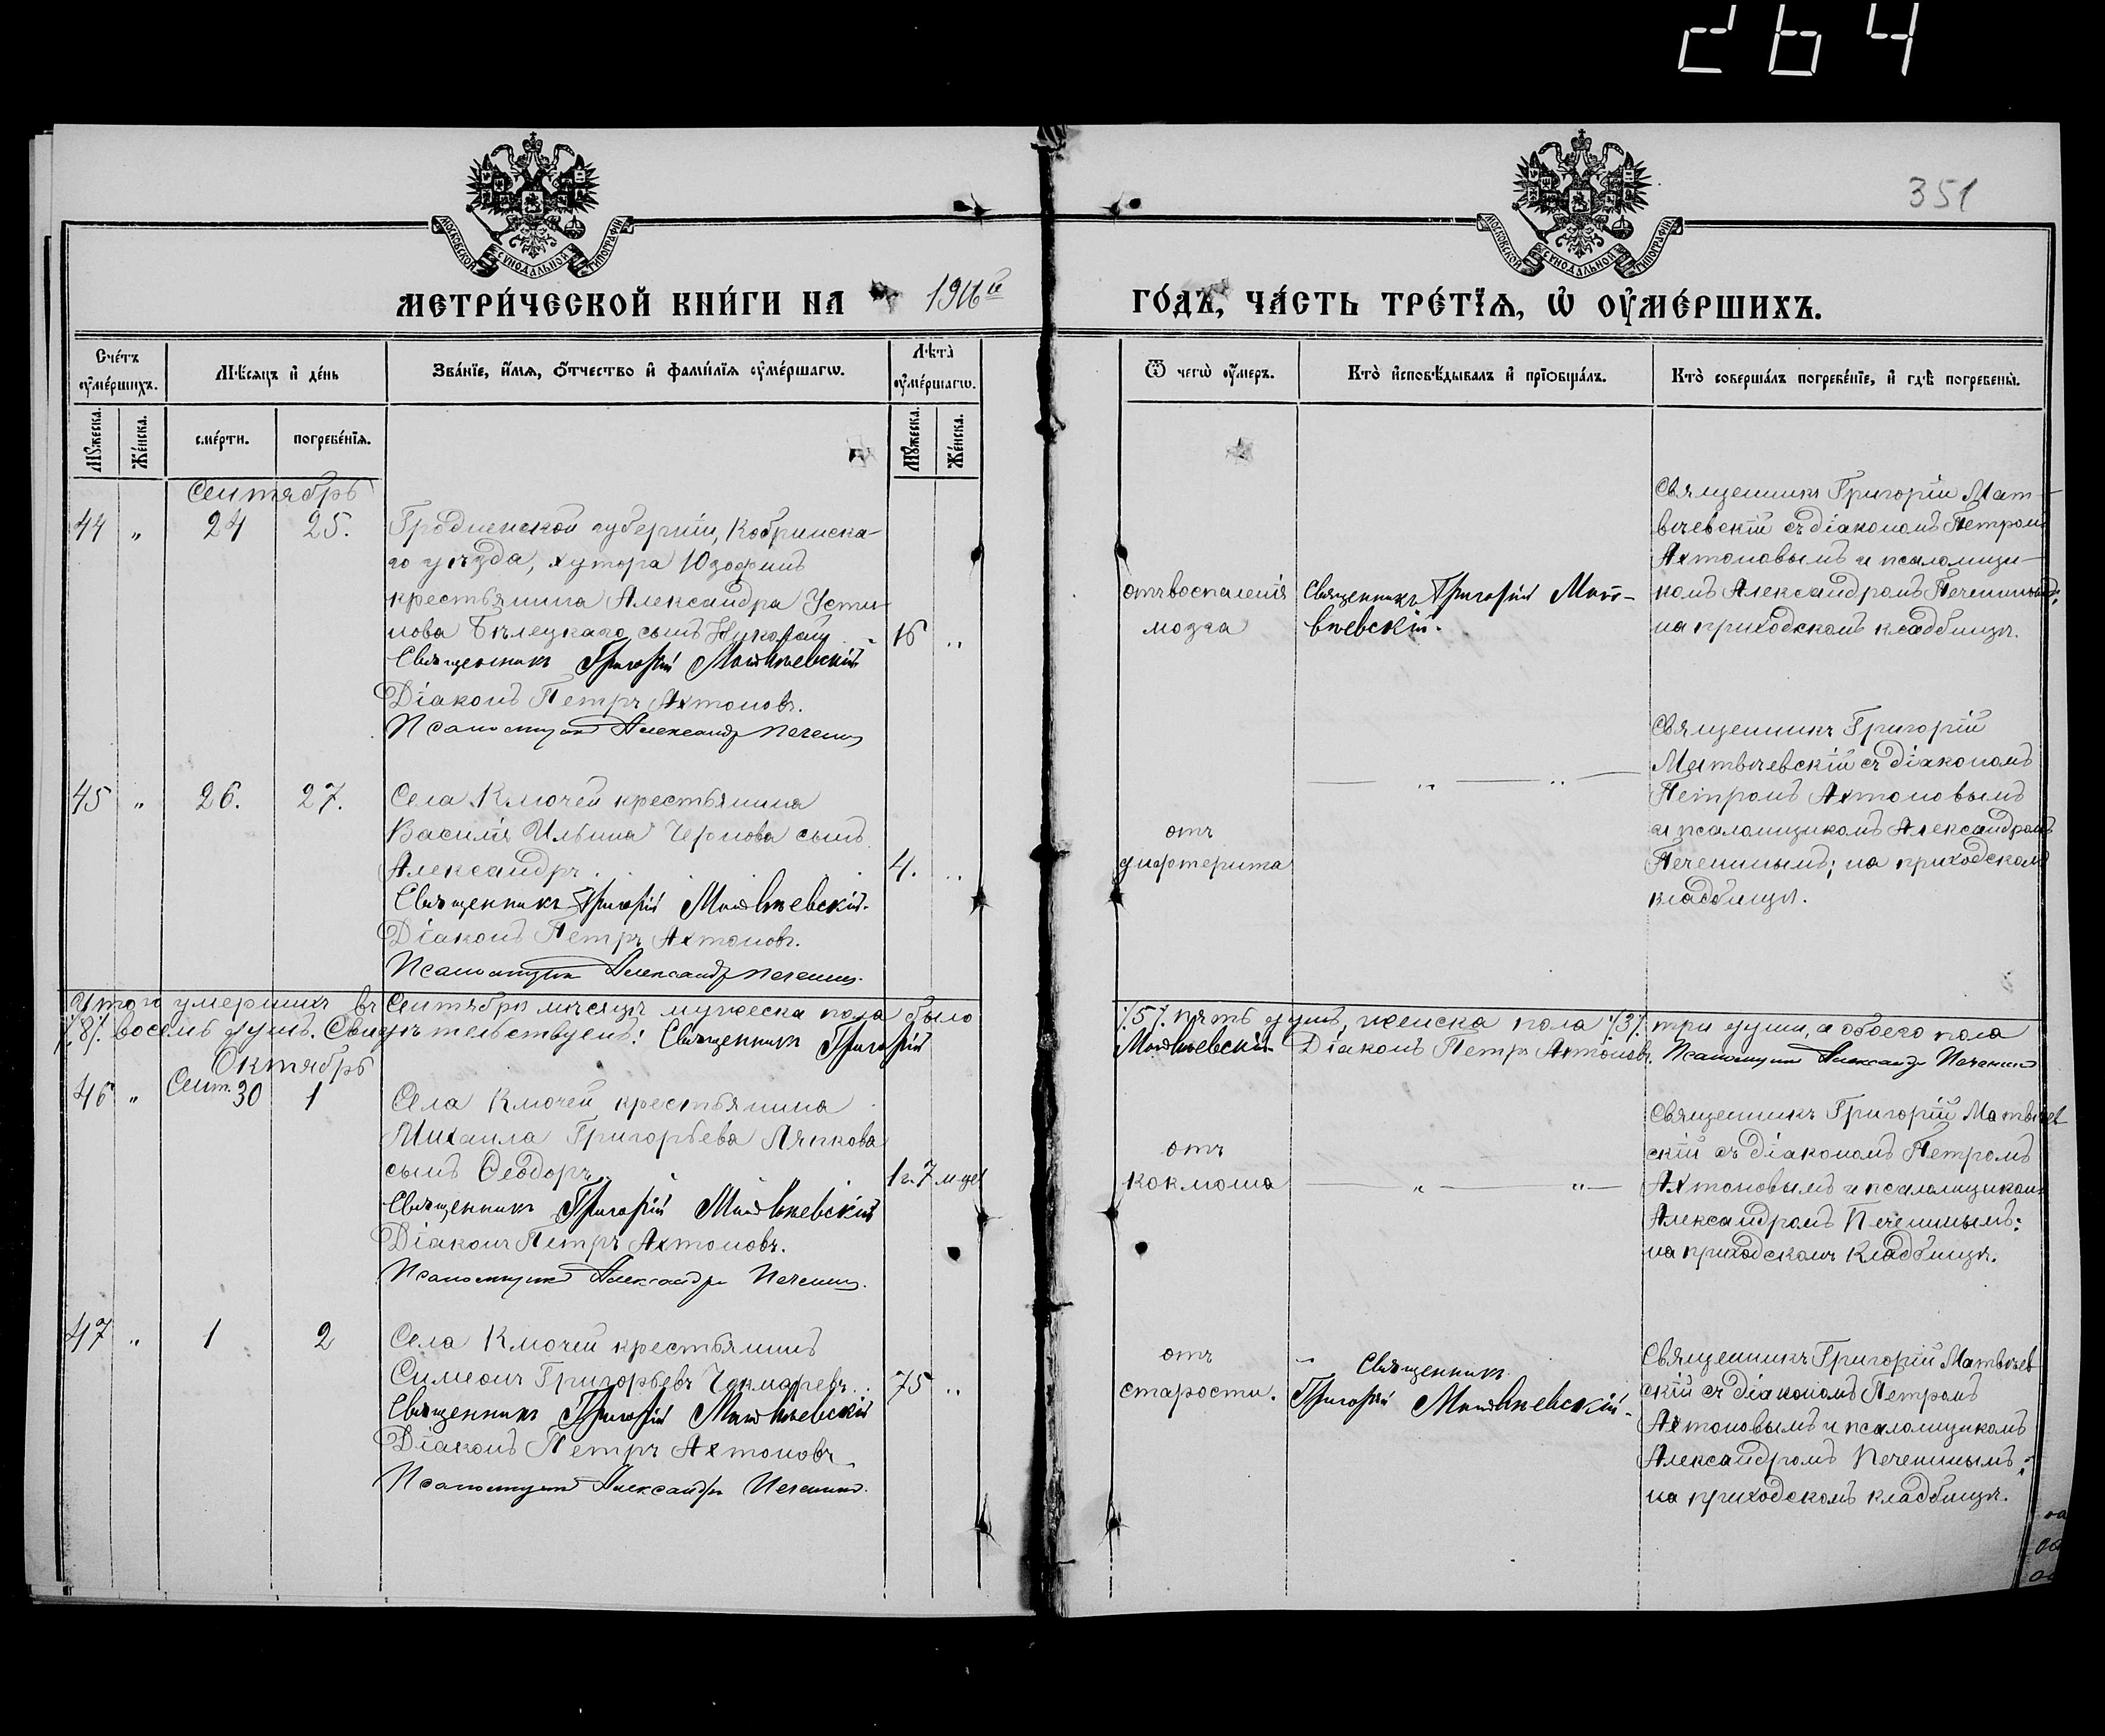 264
351
МОСКОВСКОЙ СѴНОДАЛЬНОЙ ТИПОГРАФІИ
МОСКОВСКОЙ СѴНОДАЛЬНОЙ ТИПОГРАФІИ
МЕТРИ́ЧЕСКОЙ КНИ́ГИ НА 1916й ГО́ДЪ, ЧА́СТЬ ТРЕ́ТІѦ, Ѡ҆ ОУ҆МЕ́РШИХЪ.
Сче́тъ оу҆ме́ршихъ.
Мꙋ́жеска.
Же́нска.
Мѣ́сяцъ и҆ де́нь
сме́рти.
погребе́нїѧ.
Зва́нїе, и҆́мѧ, ѻ҆́тчество и҆ фами́лїѧ оу҆ме́ршагѡ.
Лѣ́та оу҆ме́ршагѡ.
Мꙋ́жеска.
Же́нска.
Ѿ чегѡ̀ оу҆́меръ.
Кто̀ и҆сповѣ́дывалъ и҆ прїѡбща́лъ.
Кто̀ соверша́лъ погребе́нїе, и҆ гдѣ̀ погребены̀.
Сентябрь
44 „ 24 25.
Гродненской губерніи, Кобринска-
го уѣзда, хутора Юзофинъ
крестьянина Александра Усти-
нова Бѣлецкаго сынъ Николай 16 „
Священникъ Григорій Матвѣевскій
Діаконъ Петръ Ахтоновъ.
Псаломщикъ Александръ Печенинъ
отъ воспаленія
мозга
Священникъ Григорій Мат-
вѣевскій.
Священникъ Григорій Мат-
вѣевскій съ діакономъ Петромъ
Ахтоновымъ и псаломщи-
комъ Александромъ Печенинымъ;
на приходскомъ кладбищѣ.
45 „ 26. 27.
Села Ключей крестьянина
Василія Ильина Чернова сынъ
Александръ. 4. „
Священникъ Григорій Матвѣевскій.
Діаконъ Петръ Ахтоновъ.
Псаломщикъ Александръ Печенинъ.
отъ
дифтерита
— „ — „ —
Священникъ Григорій
Матвѣевскій съ діакономъ
Петромъ Ахтоновымъ
и псаломщикомъ Александромъ
Печенинымъ; на приходскомъ
кладбищѣ.
Итого умершихъ въ Сентябрѣ мѣсяцѣ мужеска пола было /5/ пять душъ, женска пола /3/ три души, а обоего пола
/8/ восемь душъ. Свидѣтельствуемъ: Священникъ Григорій Матвѣевскій Діаконъ Петръ Ахтоновъ. Псаломщикъ Александръ Печенинъ
Октябрь
46 „ Сент. 30 1
Села Ключей крестьянина
Михаила Григорьева Ляпкова
сынъ Ѳеодоръ. 1 г. 7 м-це
Священникъ Григорій Матвѣевскій
Діаконъ Петръ Ахтоновъ.
Псаломщикъ Александръ Печенинъ.
отъ
коклюша
— „ — „ —
Священникъ Григорій Матвѣев
скій съ діакономъ Петромъ
Ахтоновымъ и псаломщикомъ
Александромъ Печенинымъ;
на приходскомъ кладбищѣ.
47 „ 1 2
Села Ключей крестьянинъ
Симеонъ Григорьевъ Чекмаревъ. 75 „
Священникъ Григорій Матвѣевскій
Діаконъ Петръ Ахтоновъ
Псаломщикъ Александръ Печенинъ.
отъ
старости.
Священникъ
Григорій Матвѣевскій.
Священникъ Григорій Матвѣев
скій съ діакономъ Петромъ
Ахтоновымъ и псаломщикомъ
Александромъ Печенинымъ;
на приходскомъ кладбищѣ.